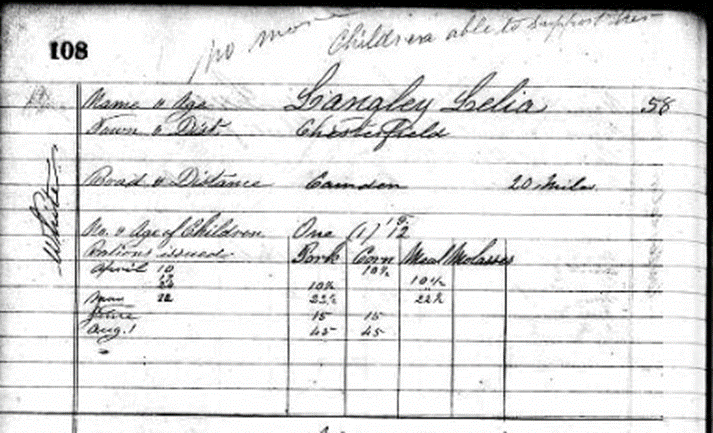 108
no more Children able to support her
Name & Age Langley Lelia 58
Town & Dist. Chesterfield
White
Road & Distance Camden 20 Miles
No. & Age of Children One (1) 12
Rations issued Pork Corn Meal Molasses
April 10 10½
10½ 10½
May 22 22½ 22½
June 15 15
Aug. 1 45 45